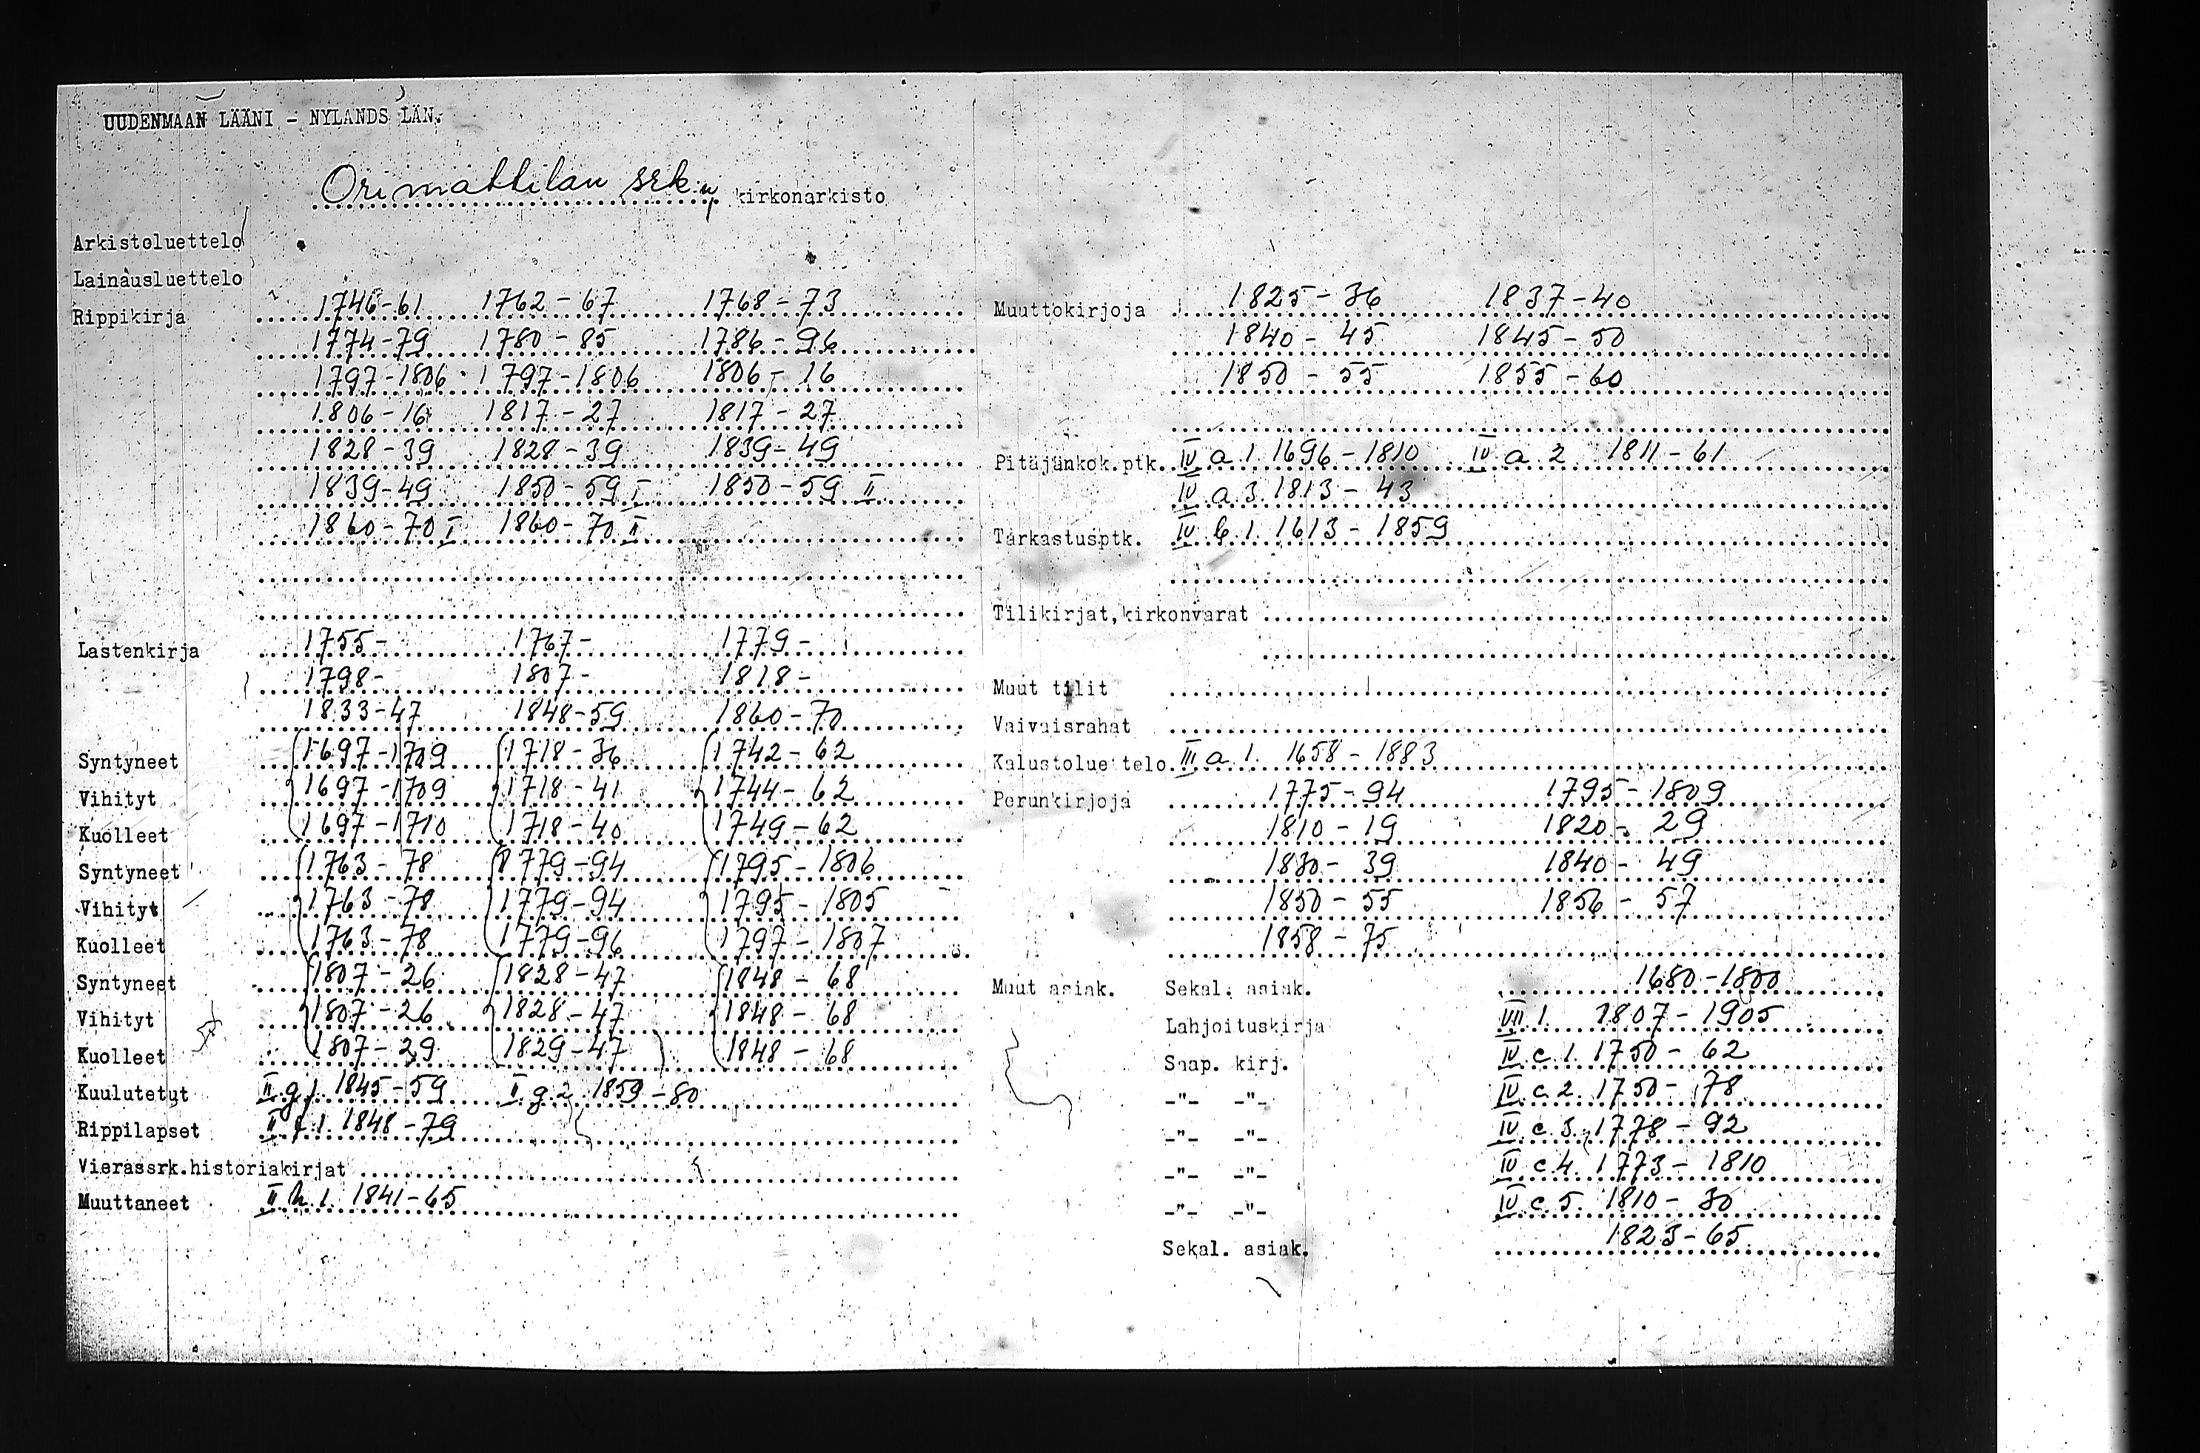 UUDENMAAN LÄÄNI - NYLANDS LÄN.
Orimattilan srk:n kirkonarkisto
Arkistoluettelo
Lainausluettelo
Rippikirja 1746-61 1762-67 1768-73
1774-79 1780-85 1786-96
1797-1806 1797-1806 1806-16
1806-16 1817-27 1817-27
1828-39 1828-39 1839-49
1839-49 1850-59 I 1850-59 II
1860-70 I 1860-70 II
Lastenkirja 1755- 1767- 1779-
1798- 1807- 1818-
1833-47 1848-59 1860-70
Syntyneet 1697-1709 1718-36 1742-62
Vihityt 1697-1709 1718-41 1744-62
Kuolleet 1697-1710 1718-40 1749-62
Syntyneet 1763-78 1779-94 1795-1806
Vihityt 1763-78 1779-94 1795-1805
Kuolleet 1763-78 1779-96 1797-1807
Syntyneet 1807-26 1828-47 1848-68
Vihityt 1807-26 1828-47 1848-68
Kuolleet 1807-29 1829-47 1848-68
Kuulutetut II g 1. 1845-59 II g 2 1859-80
Rippilapset II f 1. 1848-79
Vierassrk.historiakirjat
Muuttaneet II h 1. 1841-65
Muuttokirjoja 1825-36 1837-40
1840-45 1845-50
1850-55 1855-60
Pitäjänkok.ptk. IV a 1. 1696-1810 IV a 2 1811-61
IV a 3. 1813-43
Tarkastusptk. IV b 1. 1613-1859
Tilikirjat,kirkonvarat
Muut tilit
Vaivaisrahat
Kalustoluettelo III a 1. 1658-1883
Perunkirjoja 1775-94 1795-1809
1810-19 1820-29
1830-39 1840-49
1850-55 1856-57
1858-75
Muut asiak. Sekal. asiak. 1680-1800
Lahjoituskirja VII 1. 1807-1905
Saap. kirj. IV c 1. 1750-62
-"- -"- IV c 2. 1750-78
-"- -"- IV c 3. 1778-92
-"- -"- IV c 4. 1773-1810
-"- -"- IV c 5. 1810-30
Sekal. asiak. 1823-65